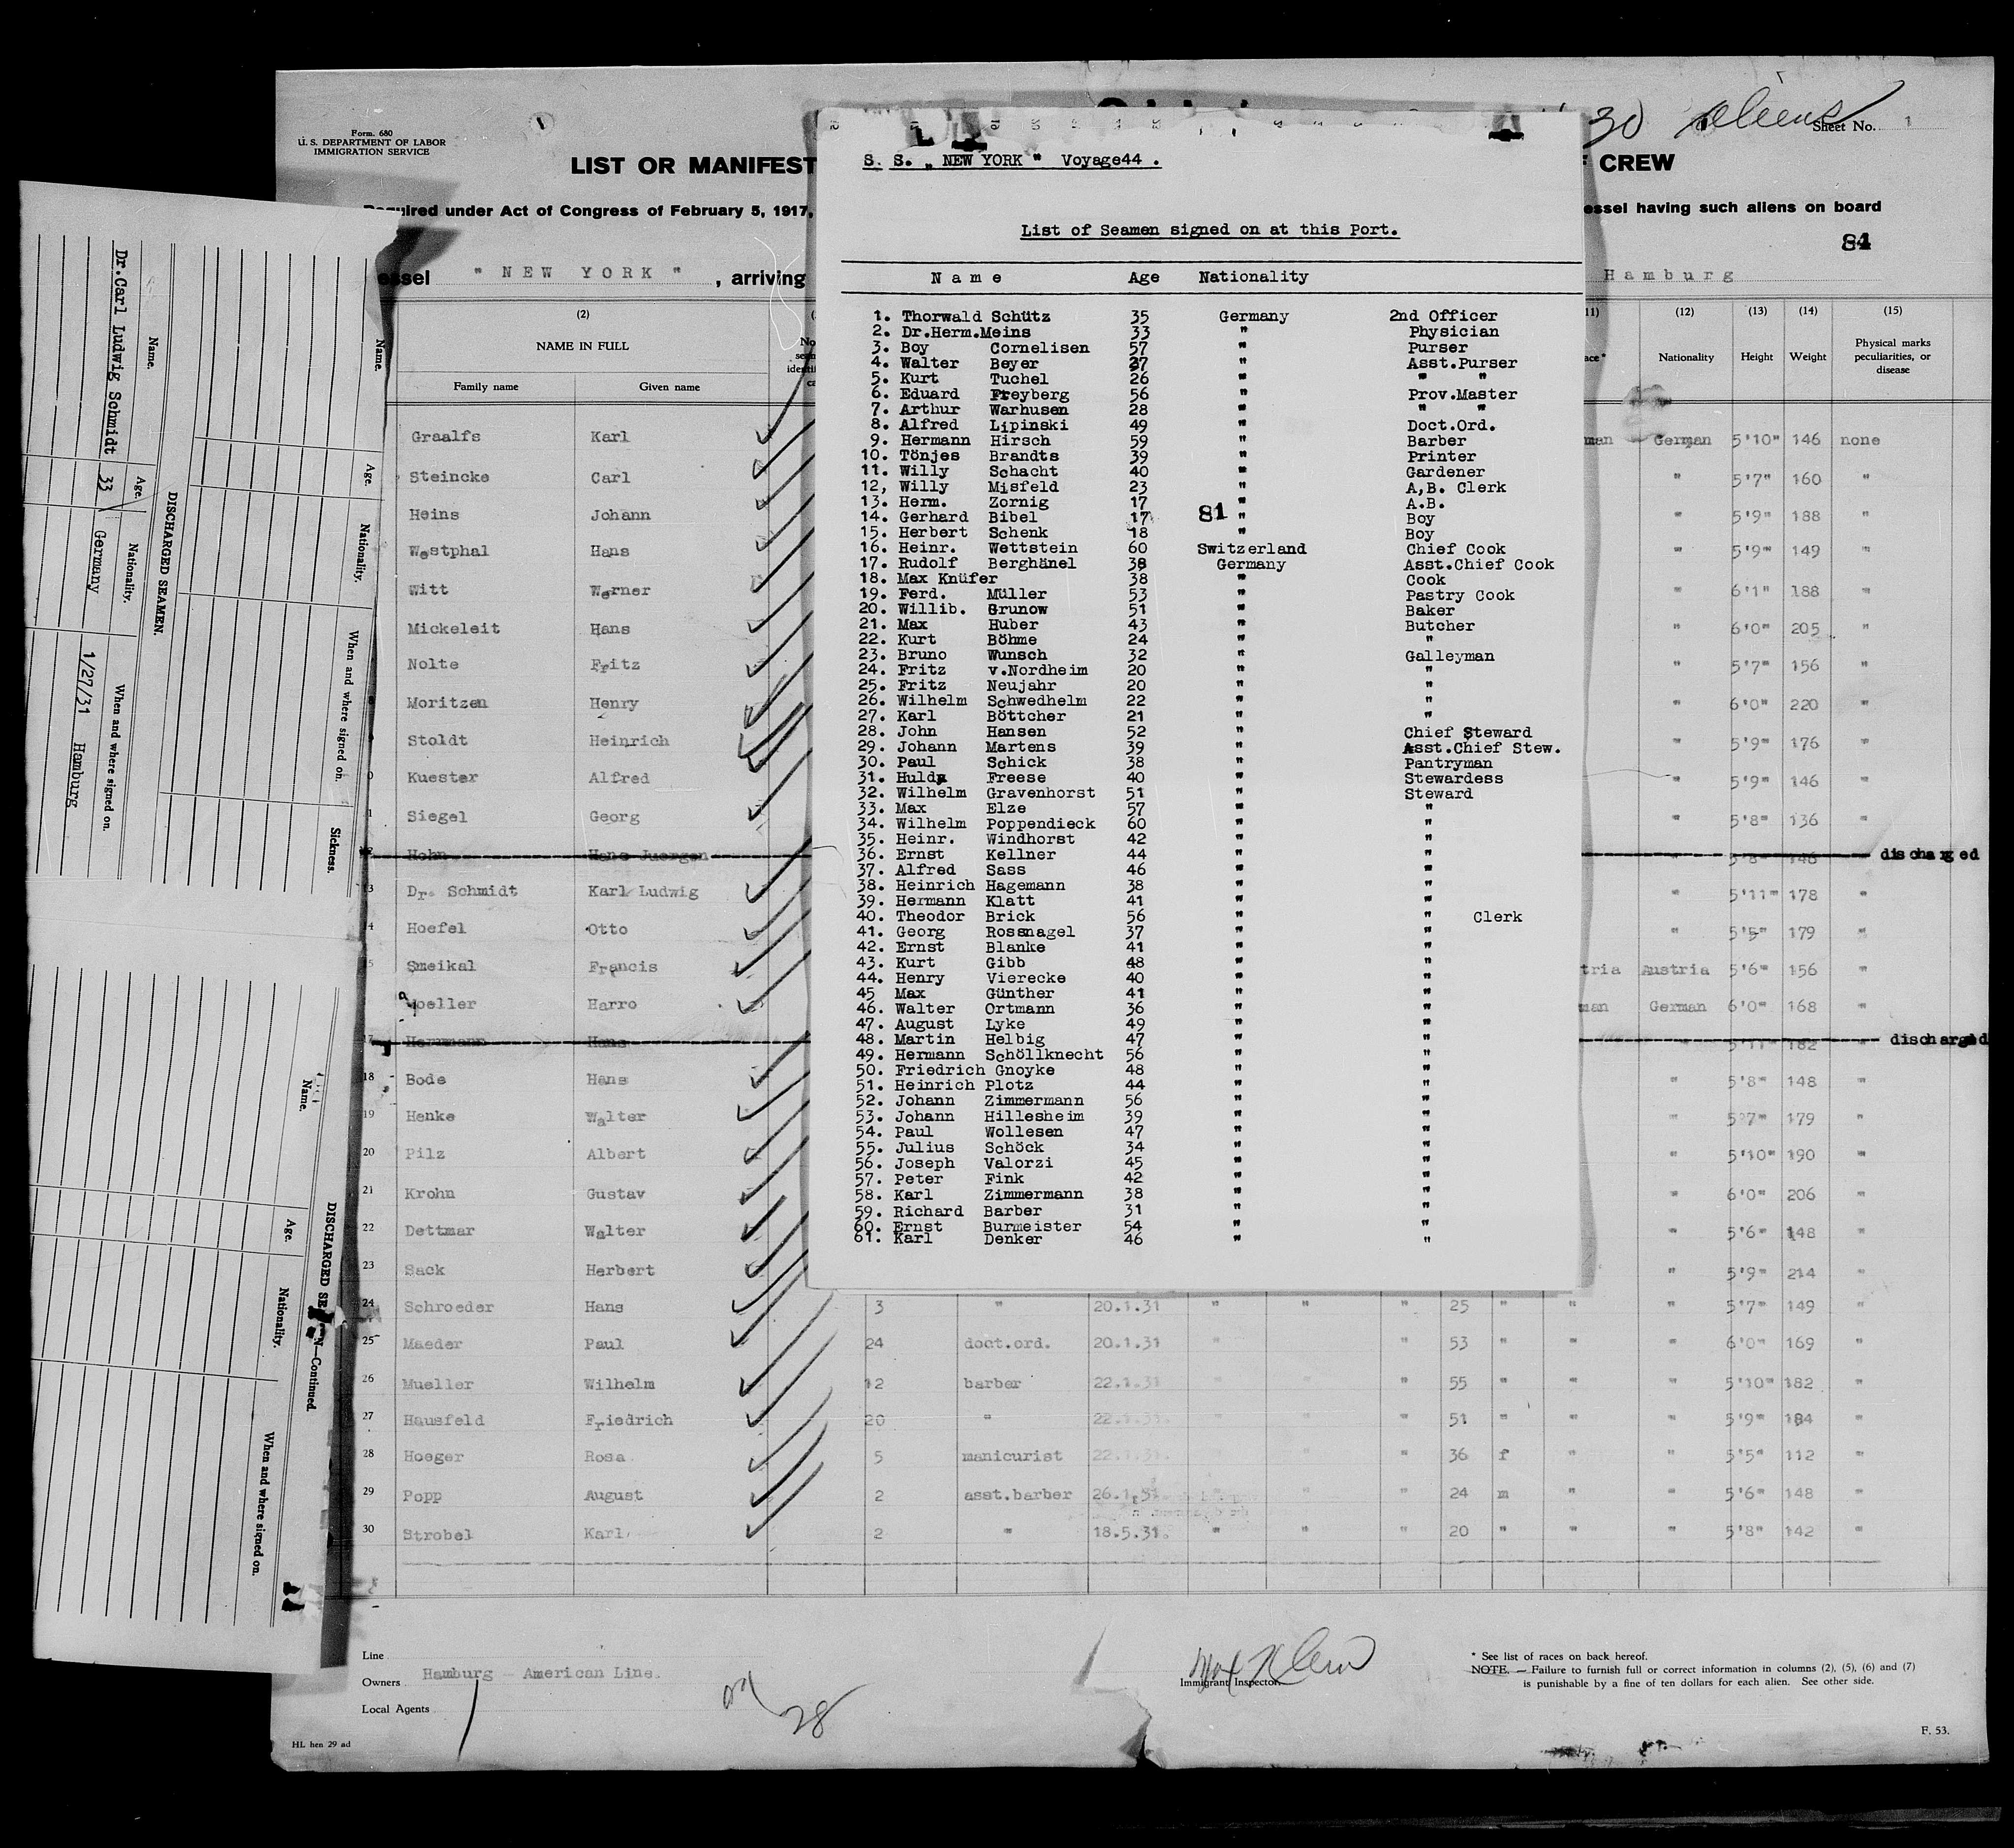 Form. 680
U. S. DEPARTMENT OF LABOR
IMMIGRATION SERVICE
30 aliens
Sheet No. 1
LIST OR MANIFEST
CREW
Required under Act of Congress of February 5, 1917,
essel having such aliens on board
84
essel " NEW YORK " , arriving
Hamburg
(2)
NAME IN FULL
Family name Given name
(12) (13) (14) (15)
Nationality Height Weight Physical marks peculiarities, or disease
S. S. „ NEW YORK " Voyage44 .
List of Seamen signed on at this Port.
Name Age Nationality
1. Thorwald Schütz 35 Germany 2nd Officer
2. Dr.Herm.Meins 33 " Physician
3. Boy Cornelisen 57 " Purser
4. Walter Beyer 37 " Asst.Purser
5. Kurt Tuchel 26 " " "
6. Eduard Freyberg 56 " Prov.Master
7. Arthur Warhusen 28 " " "
8. Alfred Lipinski 49 " Doct.Ord.
9. Hermann Hirsch 59 " Barber
10. Tönjes Brandts 39 " Printer
11. Willy Schacht 40 " Gardener
12, Willy Misfeld 23 " A,B. Clerk
13. Herm. Zornig 17 " A.B.
14. Gerhard Bibel 17 81 " Boy
15. Herbert Schenk 18 " Boy
16. Heinr. Wettstein 60 Switzerland Chief Cook
17. Rudolf Berghänel 38 Germany Asst.Chief Cook
18. Max Knüfer 38 " Cook
19. Ferd. Müller 53 " Pastry Cook
20. Willib. Grunow 51 " Baker
21. Max Huber 43 " Butcher
22. Kurt Böhme 24 " "
23. Bruno Wunsch 32 " Galleyman
24. Fritz v.Nordheim 20 " "
25. Fritz Neujahr 20 " "
26. Wilhelm Schwedhelm 22 " "
27. Karl Böttcher 21 " "
28. John Hansen 52 " Chief Steward
29. Johann Martens 39 " Asst.Chief Stew.
30. Paul Schick 38 " Pantryman
31. Hulda Freese 40 " Stewardess
32. Wilhelm Gravenhorst 51 " Steward
33. Max Elze 57 " "
34. Wilhelm Poppendieck 60 " "
35. Heinr. Windhorst 42 " "
36. Ernst Kellner 44 " "
37. Alfred Sass 46 " "
38. Heinrich Hagemann 38 " "
39. Hermann Klatt 41 " "
40. Theodor Brick 56 " " Clerk
41. Georg Rossnagel 37 " "
42. Ernst Blanke 41 " "
43. Kurt Gibb 48 " "
44. Henry Vierecke 40 " "
45 Max Günther 41 " "
46. Walter Ortmann 36 " "
47. August Lyke 49 " "
48. Martin Helbig 47 " "
49. Hermann Schöllknecht 56 " "
50. Friedrich Gnoyke 48 " "
51. Heinrich Plotz 44 " "
52. Johann Zimmermann 56 " "
53. Johann Hillesheim 39 " "
54. Paul Wollesen 47 " "
55. Julius Schöck 34 " "
56. Joseph Valorzi 45 " "
57. Peter Fink 42 " "
58. Karl Zimmermann 38 " "
59. Richard Barber 31 " "
60. Ernst Burmeister 54 " "
61. Karl Denker 46 " "
Graalfs Karl man German 5'10" 146 none
Steincke Carl " 5'7" 160 "
Heins Johann " 5'9" 188 "
Westphal Hans " 5'9" 149 "
Witt Werner " 6'1" 188 "
Mickeleit Hans " 6'0" 205 "
Nolte Fritz " 5'7" 156 "
Moritzen Henry " 6'0" 220 "
Stoldt Heinrich " 5'9" 176 "
Kuester Alfred " 5'9" 146 "
Siegel Georg " 5'8" 136 "
Hohn Hans Juergen " 5'8" 146 discharged
13 Dr. Schmidt Karl Ludwig " 5'11" 178 "
14 Hoefel Otto " 5'5" 179 "
15 Smeikal Francis tria Austria 5'6" 156 "
Moeller Harro man German 6'0" 168 "
17 Herrmann Hans " 5'11" 182 discharged
18 Bode Hans " 5'8" 148 "
19 Henke Walter " 5'7" 179 "
20 Pilz Albert " 5'10" 190 "
21 Krohn Gustav " 6'0" 206 "
22 Dettmar Walter " 5'6" 148 "
23 Sack Herbert " 5'9" 214 "
24 Schroeder Hans 3 " 20.1.31 " " " 25 " " " 5'7" 149 "
25 Maeder Paul 24 doct.ord. 20.1.31 " " 53 " " " 6'0" 169 "
26 Mueller Wilhelm 12 barber 22.1.31 " " " 55 " " " 5'10" 182 "
27 Hausfeld Friedrich 20 " 22.1.31. " " " 51 " " " 5'9" 184 "
28 Hoeger Rosa 5 manicurist 22.1.31. " " " 36 f " " 5'5" 112 "
29 Popp August 2 asst.barber 26.1.31 " " " 24 m " " 5'6" 148 "
30 Strobel Karl 2 " 18.5.31. " " " 20 " " " 5'8" 142 "
Line
Owners Hamburg - American Line.
Local Agents
28
Max Klein
Immigrant Inspector.
* See list of races on back hereof.
NOTE. — Failure to furnish full or correct information in columns (2), (5), (6) and (7)
is punishable by a fine of ten dollars for each alien. See other side.
HL hen 29 ad
F. 53.
Name. Age. Nationality. When and where signed on. Sickness.
DISCHARGED SEAMEN.
Name. Age. Nationality. When and where signed on.
Dr.Carl Ludwig Schmidt 33 Germany 1/27/31 Hamburg
DISCHARGED SEAMEN—Continued.
Name. Age. Nationality. When and where signed on.